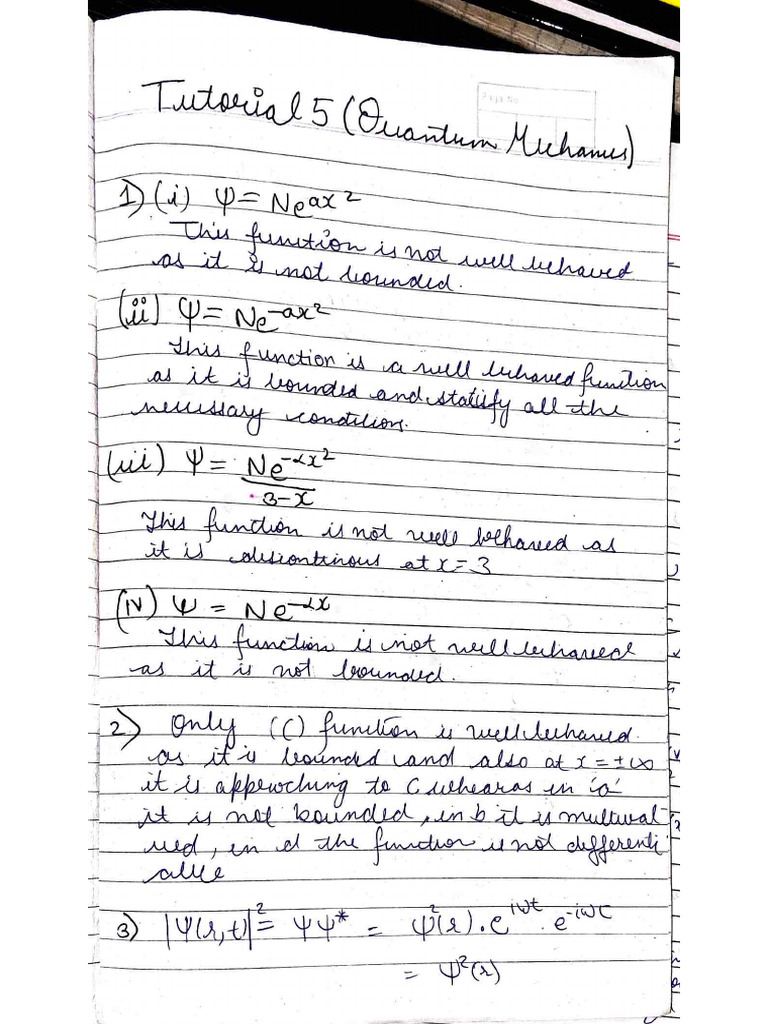 Page No.
Tutorial 5 (Quantum Mechanics)
1) (i) Ψ = Ne^ax²
This function is not well behaved
as it is not bounded.
(ii) Ψ = Ne^-ax²
This function is a well behaved function
as it is bounded and statisfy all the
necessary condition.
(iii) Ψ = Ne^-αx²
3-x
This function is not well behaved as
it is discontinous at x=3
(iv) Ψ = Ne^-αx
This function is not well behaved
as it is not bounded.
2) Only (C) function is well behaved.
as it is bounded and also at x = ±∞
it is approching to C whearas in 'a'
it is not bounded, in b it is multival
ued, in d the function is not differenti
able
3) |Ψ(r,t)|² = ΨΨ* = Ψ²(r).e^iωt . e^-iωt
= Ψ²(r)